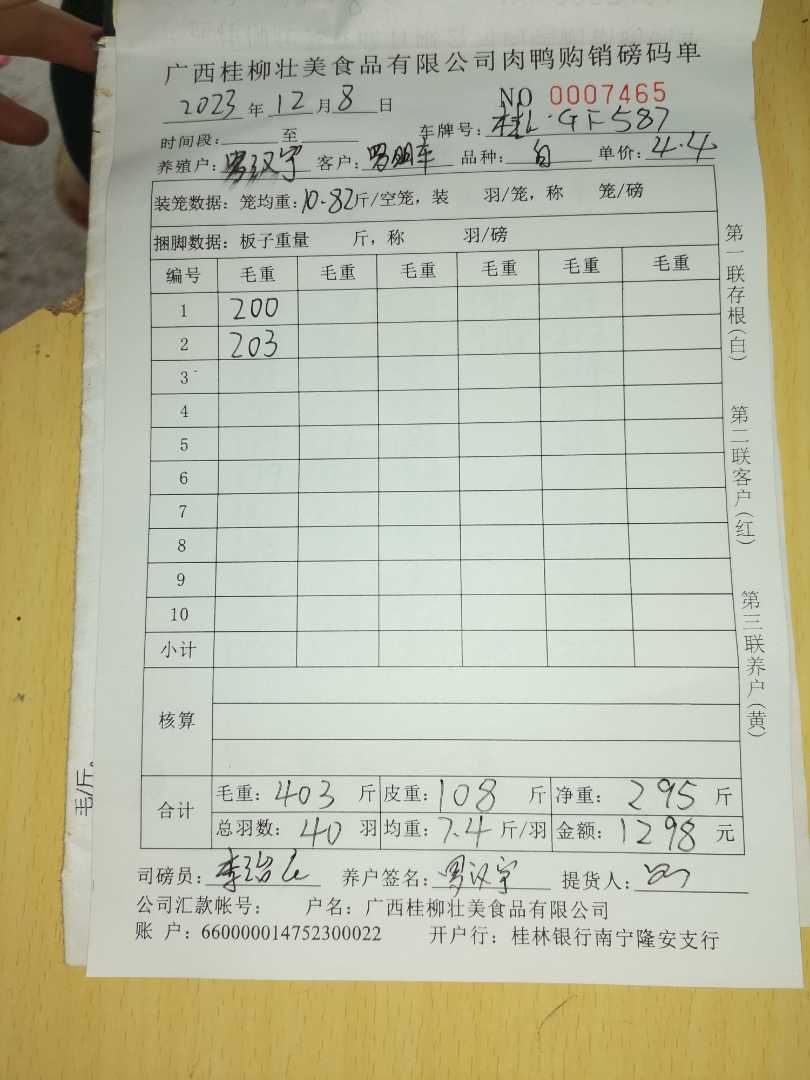 广西桂柳壮美食品有限公司肉鸭购销磅码单
2023年12月8日 NO 0007465
时间段: 至 车牌号: 桂L·GF587
养殖户: 罗汉宇 客户: 品种: 白 单价: 4.4
装笼数据: 笼均重: 10.82斤/空笼, 装 羽/笼, 称 笼/磅
捆脚数据: 板子重量 斤, 称 羽/磅
编号 毛重 毛重 毛重 毛重 毛重 毛重
1 200
2 203
3
4
5
6
7
8
9
10
小计
核算
合计 毛重: 403 斤 皮重: 108 斤 净重: 295 斤
总羽数: 40 羽 均重: 7.4 斤/羽 金额: 1298 元
司磅员: 养户签名: 罗汉宇 提货人:
公司汇款帐号: 户名: 广西桂柳壮美食品有限公司
账 户: 660000014752300022 开户行: 桂林银行南宁隆安支行
第一联存根(白)
第二联客户(红)
第三联养户(黄)
毛/斤。